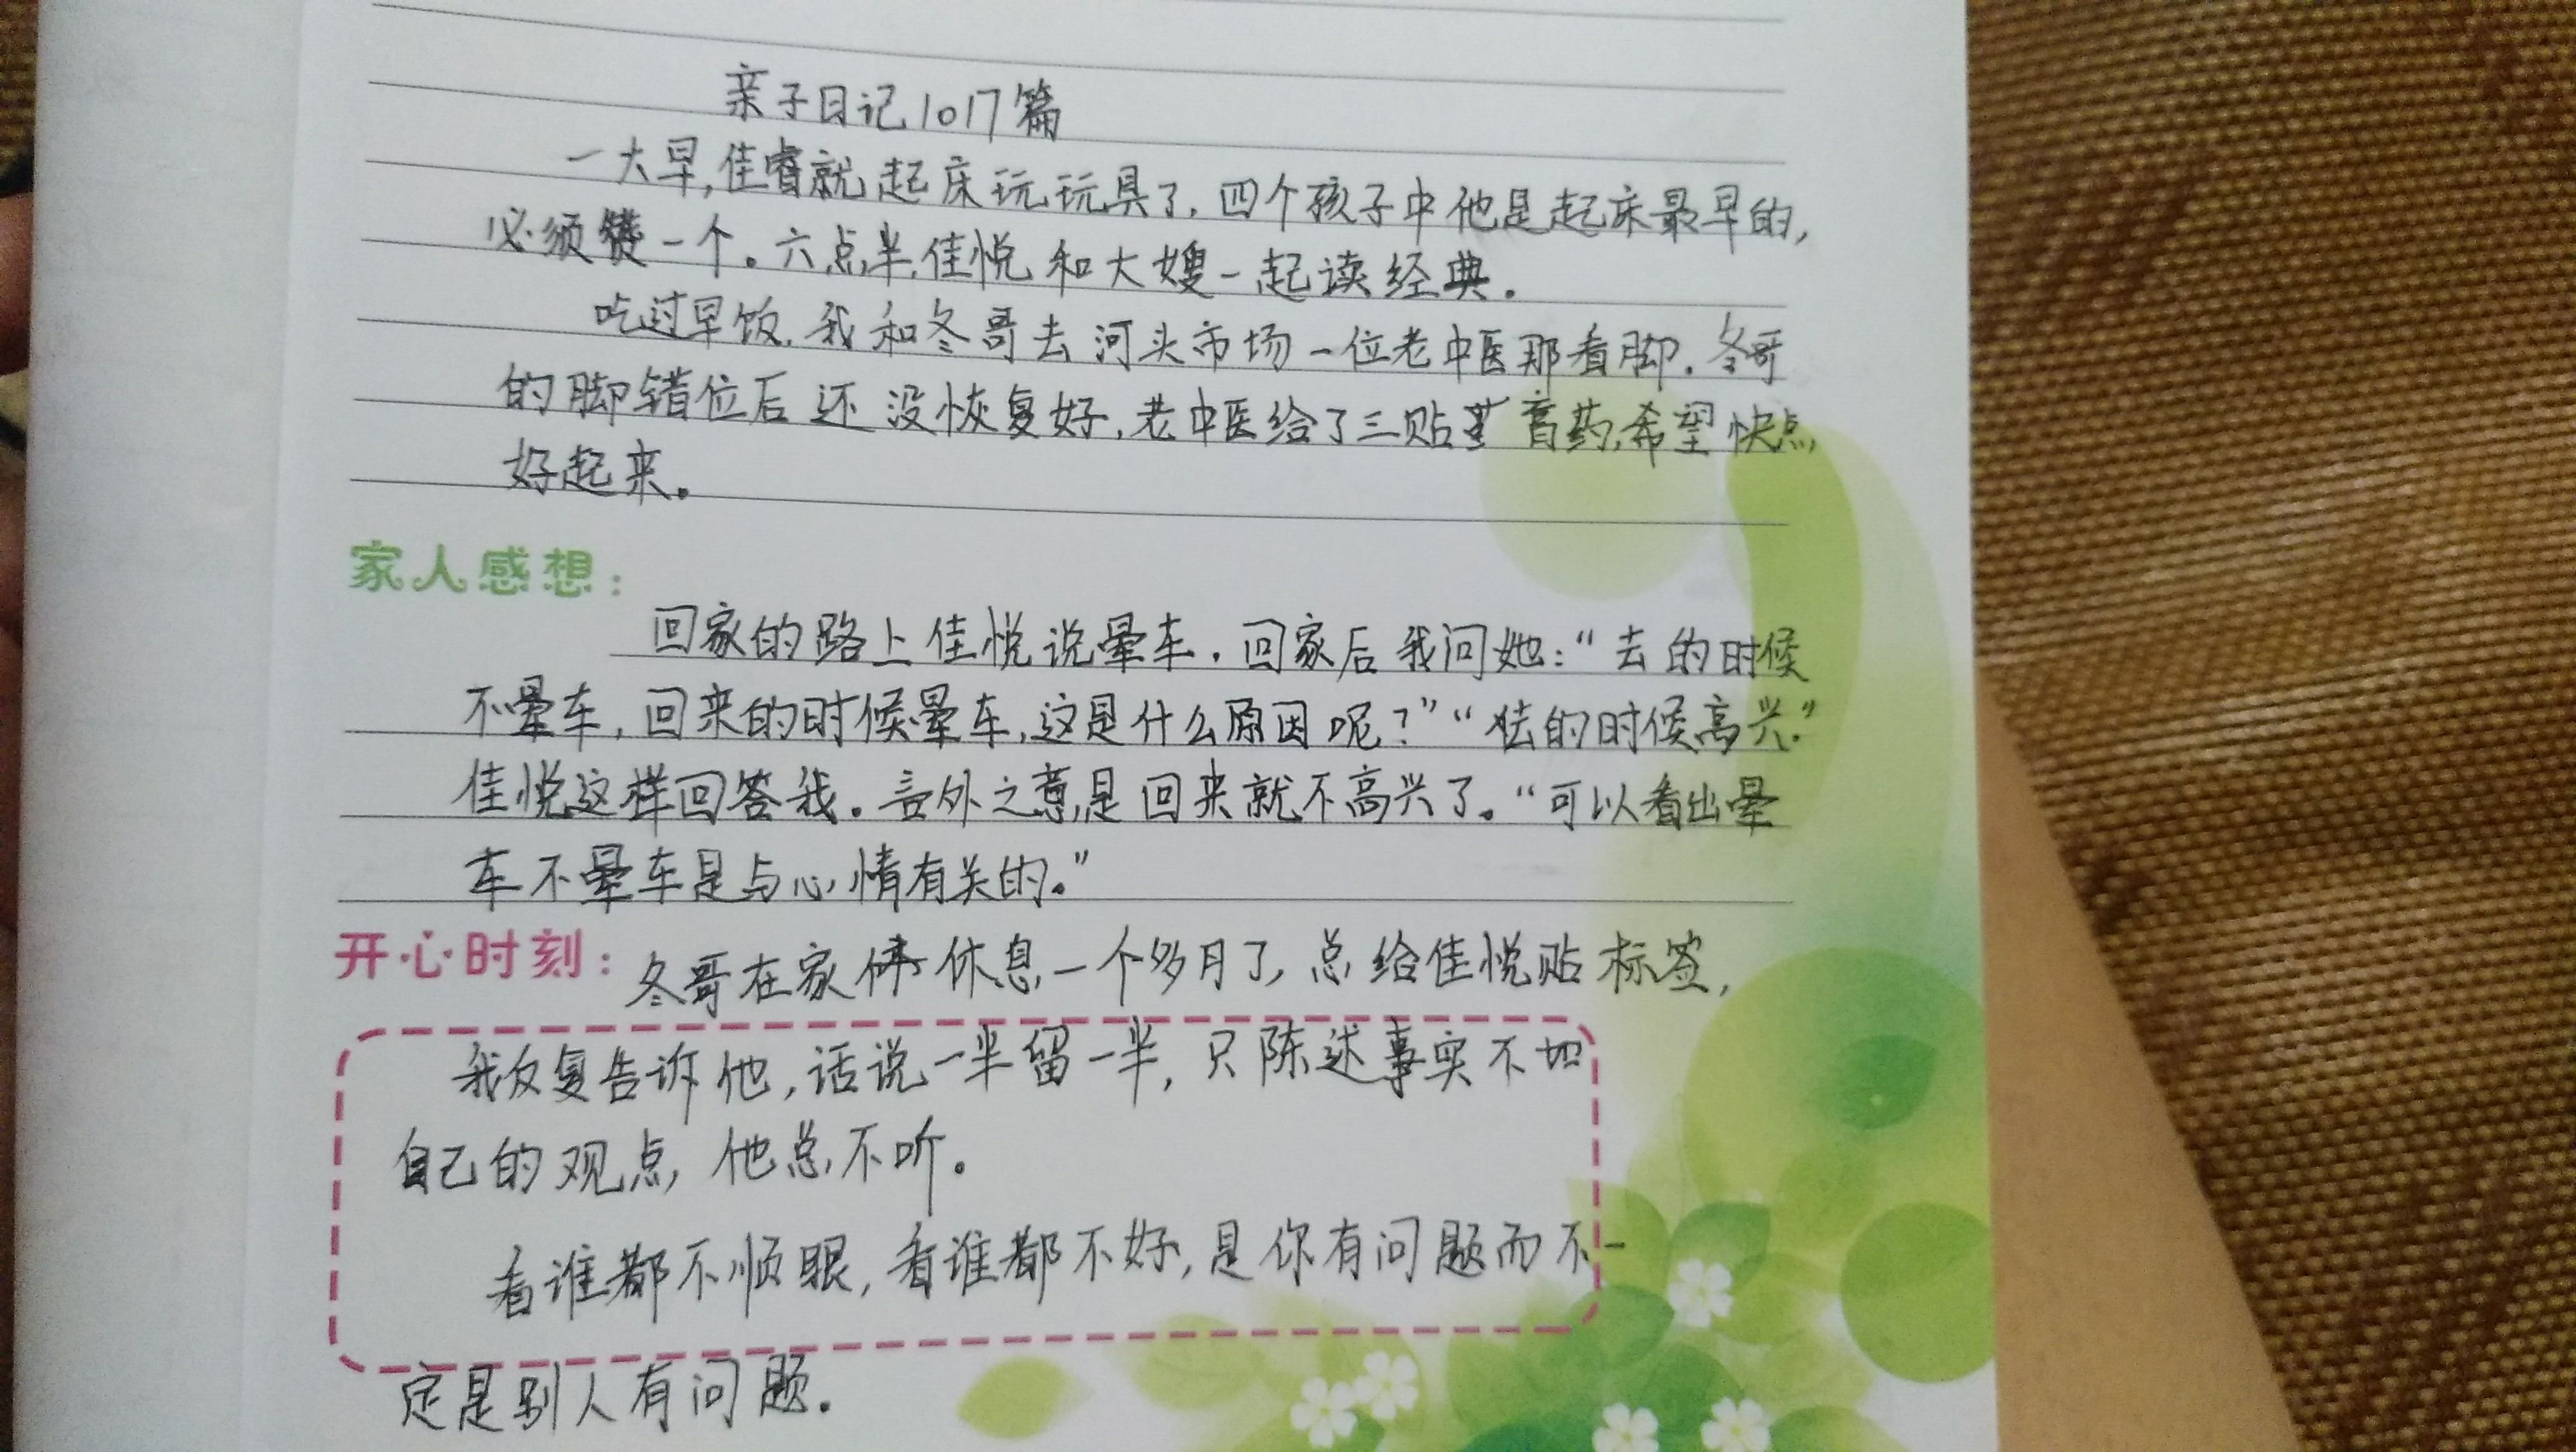 亲子日记1017篇
一大早,佳睿就起床玩玩具了.四个孩子中他是起床最早的,
必须赞一个。六点半,佳悦和大嫂一起读经典.
吃过早饭,我和冬哥去河头市场一位老中医那看脚.冬哥
的脚错位后还没恢复好,老中医给了三贴膏药,希望快点
好起来。
家人感想:
回家的路上佳悦说晕车.回家后我问她:“去的时候
不晕车,回来的时候晕车,这是什么原因呢?”“去的时候高兴.”
佳悦这样回答我。言外之意,是回来就不高兴了。“可以看出晕
车不晕车是与心情有关的。”
开心时刻:冬哥在家休息一个多月了,总给佳悦贴标签,
我反复告诉他,话说一半留一半,只陈述事实不加
自己的观点,他总不听。
看谁都不顺眼,看谁都不好,是你有问题而不一
定是别人有问题.